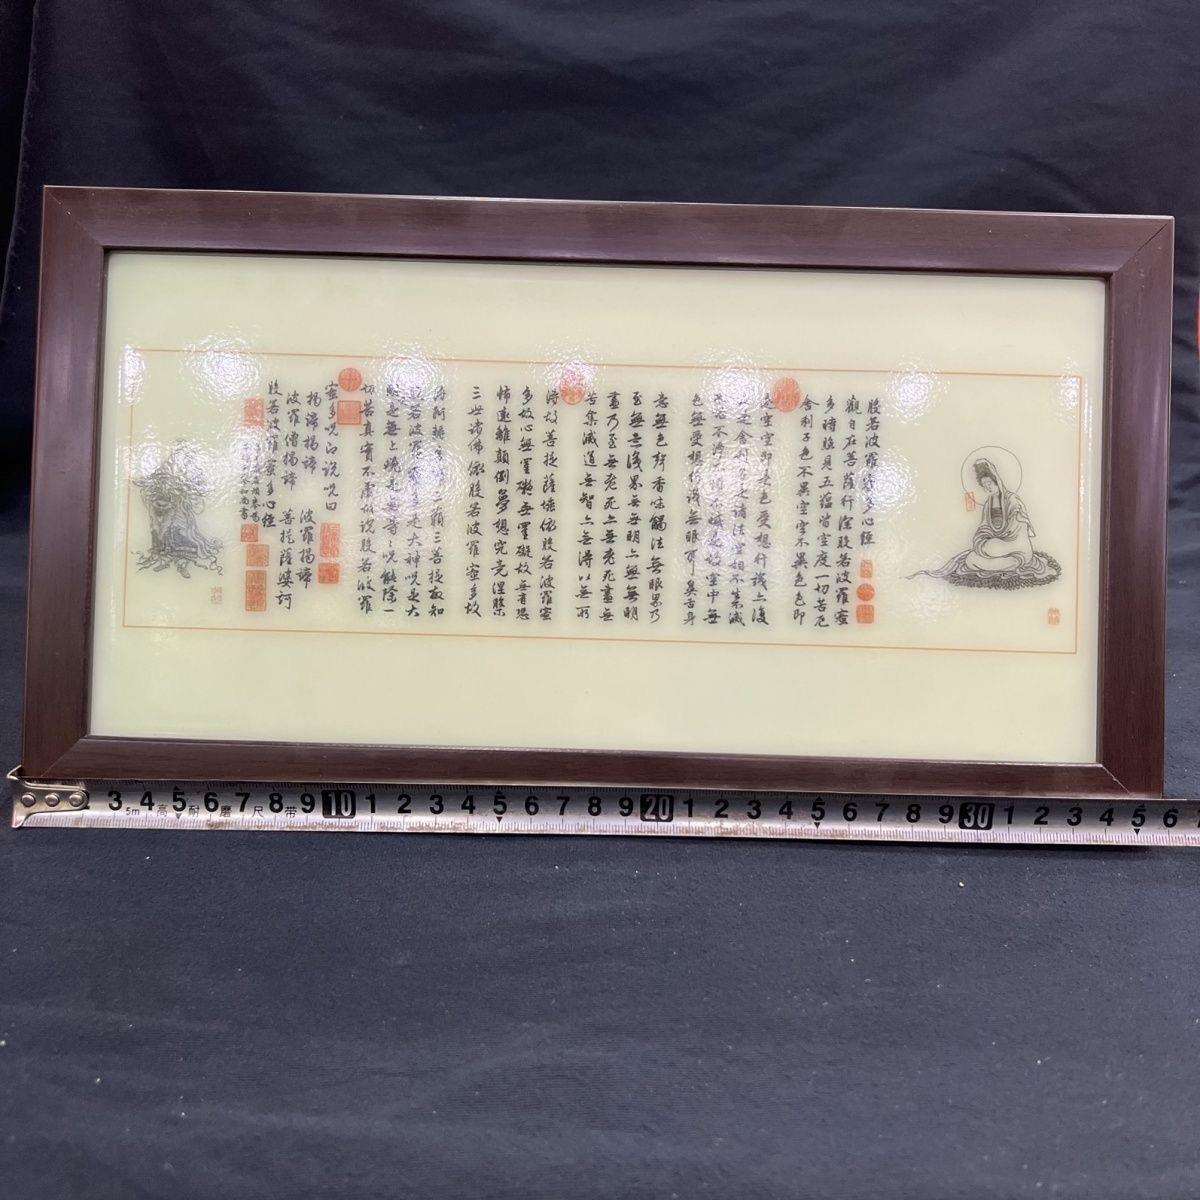 般若波羅蜜多心經
觀自在菩薩行深般若波羅蜜
多時照見五蘊皆空度一切苦厄
舍利子色不異空空不異色色即
是空空即是色受想行識亦復
如是舍利子是諸法空相不生不滅
不垢不淨不增不減是故空中無
色無受想行識無眼耳鼻舌身
意無色聲香味觸法無眼界乃
至無意識界無無明亦無無明
盡乃至無老死亦無老死盡無
苦集滅道無智亦無得以無所
得故菩提薩埵依般若波羅蜜
多故心無罣礙無罣礙故無有恐
怖遠離顛倒夢想究竟涅槃
三世諸佛依般若波羅蜜多故
得阿耨多羅三藐三菩提故知
般若波羅蜜多是大神咒是大
明咒是無上咒是無等等咒能除一
切苦真實不虛故說般若波羅
蜜多咒即說咒曰
揭諦揭諦 波羅揭諦
波羅僧揭諦 菩提薩婆訶
般若波羅蜜多心經
3 4 5 6 7 8 9 10 1 2 3 4 5 6 7 8 9 20 1 2 3 4 5 6 7 8 9 30 1 2 3 4 5 6
5m 高耐磨尺带